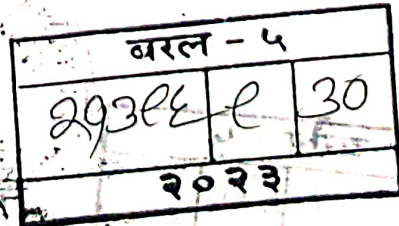 बरल - ५
२१३९६ ९ 30
२०२३